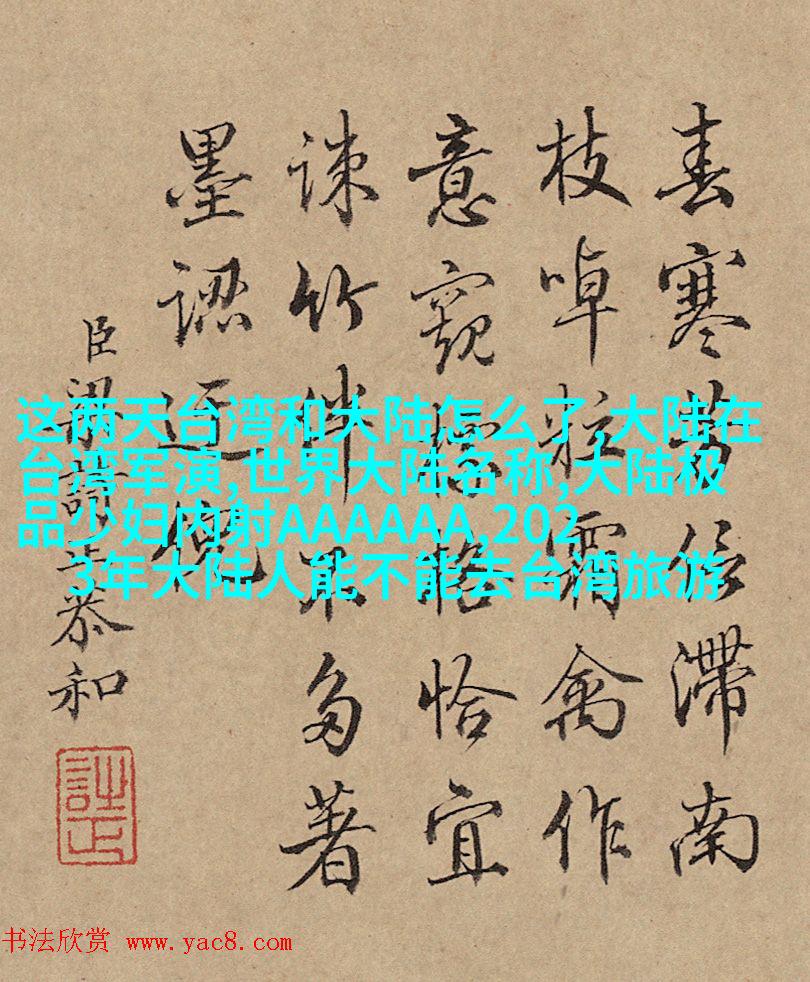 春寒芳信滞南
枝啅粒霜禽作
意窺標格恰宜
疎竹伴不多著
墨認迂倪
臣梁詩正恭和
这两天台湾和大陆怎么了,大陆在
台湾军演,世界大陆名称,大陆极
品少妇内射AAAAAA,202
3年大陆人能不能去台湾旅游
书法欣赏 www.yac8.com